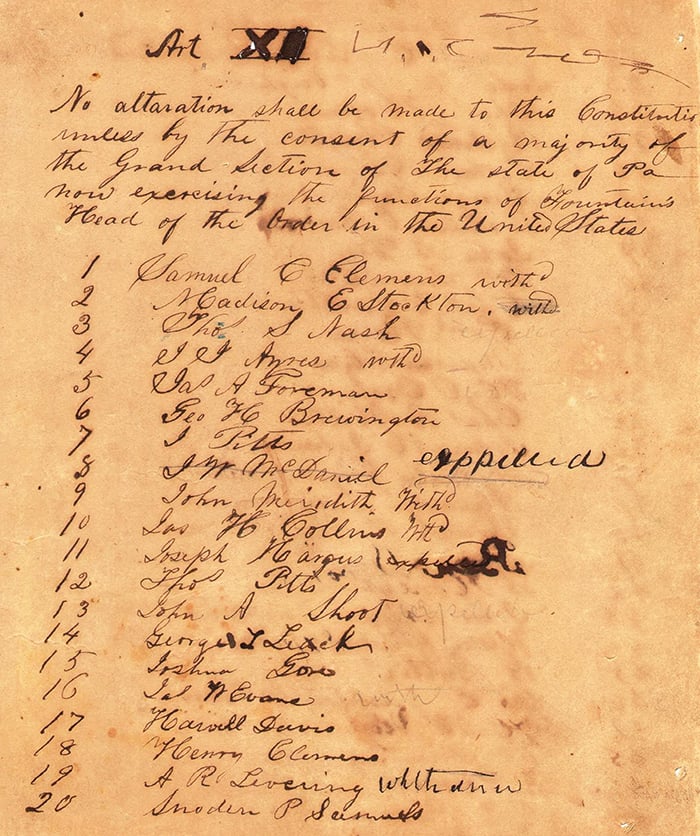 Art XII
No altaration shall be made to this Constitutio
unless by the consent of a majority of
the Grand Section of The state of Pa
now exercising the functions of Fountain's
Head of the Order in the United States
1 Samuel C Clemens withd
2 Madison E Stockton. withd
3 Thos S Nash
4 J J Ayres withd
5 Jas A Foreman
6 Geo H Brewington
7 J Pitts
8 J W McDaniel exppelled
9 John Meridith Withd
10 Jas H Collins Wthd
11 Joseph Hargus
12 Thos Pitts
13 John A Shoot expelled
14 George L Leach
15 Joshua Gore
16 Jas W Evans with
17 Harvell Davis
18 Henry Clemens
19 A R Levering withdrew
20 Snoden P Samuels